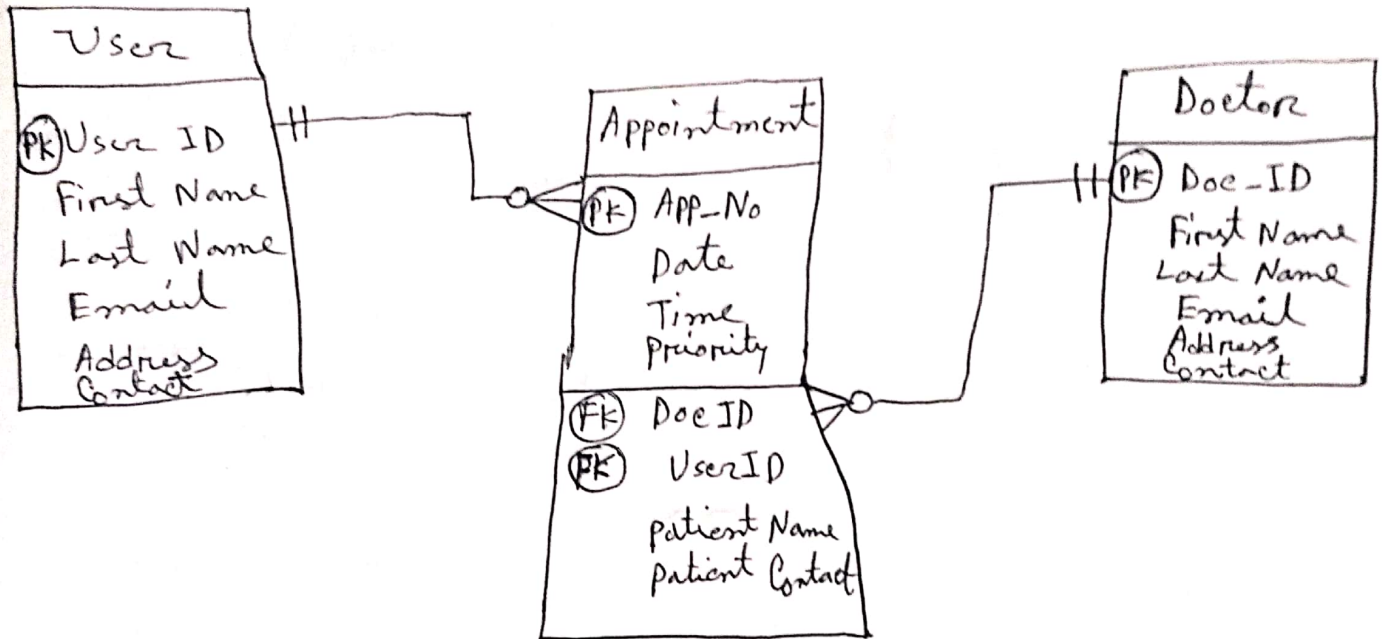 User
PK User ID
First Name
Last Name
Email
Address
Contact
Appointment
PK App-No
Date
Time
Priority
FK Doc ID
FK User ID
Patient Name
Patient Contact
Doctor
PK Doc-ID
First Name
Last Name
Email
Address
Contact